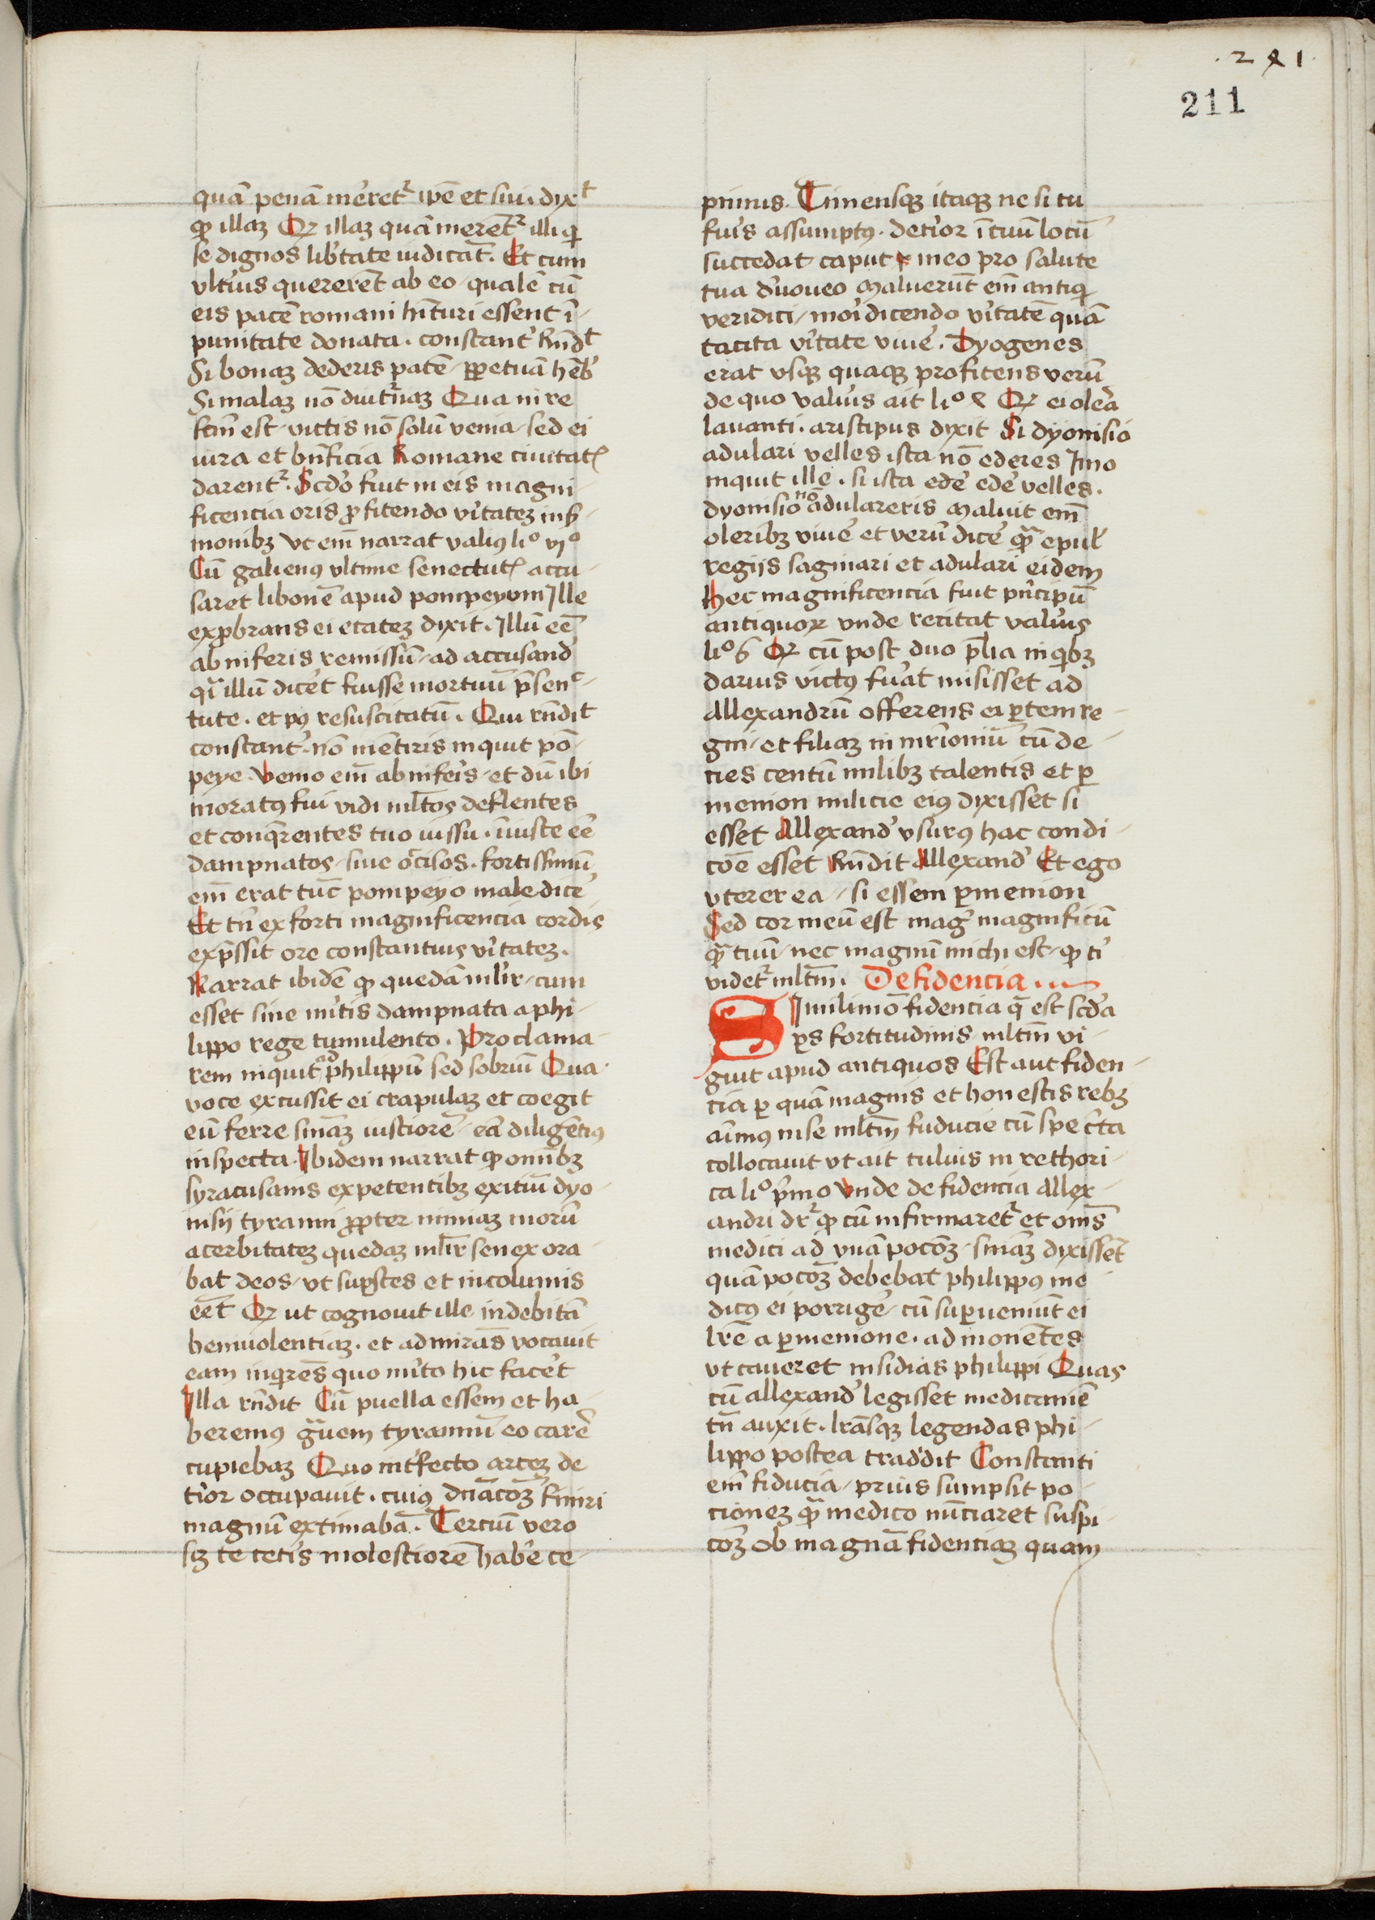 .2 Ʌ 1.
211
quā penā mer̉etᷣ ip̄e et sui. dyxᵗ
ꝙ illaꝫ Qꝫ illaꝫ quā merentᷣ illi qi
se dignos lib̉tate iudicāt. Et cum
vlt̉ius quererēt ab eo qualē cū
eis pacē romani hītᷣuri essent ī-
punitate donata. constant̉ Rn̄dᵗ
Si bonaꝫ dederis pacē ꝑpetuā hēb̉
Si malaꝫ nō diut̉naꝫ Qua in re
fcm̄ est victis nō solū venia sed ei
iura et bn̄ficia Romane ciuitatꝭ
darentᷣ. Scd̓o fuit in eis magni-
ficencia oris ꝓfitendo v̉itateꝫ in s̉-
monibꝫ Vt em̄ narrat valiꝰ liº viº
Cū galienꝰ vltime senectutꝭ accu-
saret libonē apud pompeyum Ille
exprobrans ei etateꝫ dixit. Illū eē
ab inferis remissū ad accusand̓
qi illū dic̉et fuisse mortuū p̄senc-
tute. et pꝰ resuscitatū. Qui rn̄dit
constant̉. nō mētiris inquit pō-
peye. Venio em̄ ab inferis et dū ibi
moratꝰ fui vidi ml̄tos deflentes
et conqrentes tuo iussu. īiuste eē
dampnatos siue occisos. fortissimū
em̄ erat tūc pompeyo male dic̉e
Et tn̄ ex forti magnificencia cordis
exp̄ssit ore constantius v̉itateꝫ.
Narrat ibidē ꝙ quedā mlīr cum
esset sine m̉itis dampnata a phi-
lippo rege tumulento. Proclama-
rem inquit ad philippū sed sobriū Qua
voce excussit ei crapulaꝫ et coegit
eū ferre sn̄iaꝫ iustiorē eā diligētiꝰ
inspecta. Ibidem narrat ꝙ omībꝫ
syracusanis expetentibꝫ exitiū dyo-
nisij tyranni ꝓpter nimiaꝫ morū
acerbitateꝫ quedaꝫ mlīr senex ora-
bat deos vt supstes et incolumis
eēt Qꝫ ut cognouit ille indebitā
beniuolentiaꝫ. et admirās vocauit
eam inqirēs quo m̉ito hic fac̉et
Illa rn̄dit Cū puella essem et ha-
beremꝰ grauem tyrannū eo car̉e
cupiebaꝫ Quo int̉fecto arceꝫ de
t̉ior occupauit. cuiꝰ dn̄acōꝫ finiri
magnū extimabā. Tercium vero
sꝫ te cet̉is molestiorē hab̉e ce-
pimus. Timensqꝫ itaqꝫ ne si tu
fu̓is assumptꝰ. det̉ior ī tuū locū
succedat caput meo pro salute
tua d̓uoueo Maluerūt em̄ antiqi
veridici mori dicendo v̉itatē quā
tacita v̉itate viu̓e. Dyogenes
erat vsqꝫ quaqꝫ profitens verū
de quo valius ait liº 4 Qꝫ ei olera
lauanti. aristipus dyxit Si dyonisio
adulari velles ista nō ederes Imo
inquit ille. si ista ede ede velles.
dyonisio nō adulareris Maluit em̄
oleribꝫ viu̓e et verū dic̉e qᵃ epul̓
regijs saginari et adulari eidem
Hec magnificencia fuit pn̓cipū
antiquoꝝ vnde recitat valius
liº 6 Qꝫ cū post duo p̄lia in qibꝫ
darius victꝰ fu̓at misisset ad
Allexandrū offerens ei ꝑtem re-
gni et filiaꝫ in mr̄ioniū cū de-
cies centū milibꝫ talentis et ꝑ
menion milicie eius dyxisset si
esset Allexand̓ vsurꝰ hac condi-
cōe esset Rn̄dit Allexand̓ Et ego
vterer ea si essem ꝑmenion
Sed cor meū est mag̓ magnificū
qᵃ tuū nec magnū michi est ꝙ ti
videtᷣ ml̄tm̄. De fidencia ...
Similimō fidencia q̄ est scd̓a
ꝑs fortitudinis ml̄tm̄ vi-
guit apud antiquos Est aut fiden-
cia ꝑ quā magnis et honestis rebꝫ
aīmꝰ in se ml̄tm̄ fiducie cū spe c̉ta
collocauit vt ait tulius in rethori-
ca liº p̓mo Vnde de fidencia Allex-
andri drᷣ ꝙ cū infirmaretᷣ et om̄s
medici ad vnā pocōꝫ sn̄iaꝫ dyxissēt
quā pocōꝫ debebat philippꝰ me-
dicꝰ ei porrig̉e cū supueniūt ei
lr̄e a ꝑmenione. admonētes
vt caueret insidias philippi Quas
cū allexand̓ legisset medicamē
tn̄ auxit. lrāsqꝫ legendas phi-
lippo postea tradidit Constanti
em̄ fiducia prius sumpsit po-
cioneꝫ qᵃ medico nūciaret suspi-
cōꝫ Ob magnā fidenciaꝫ quam